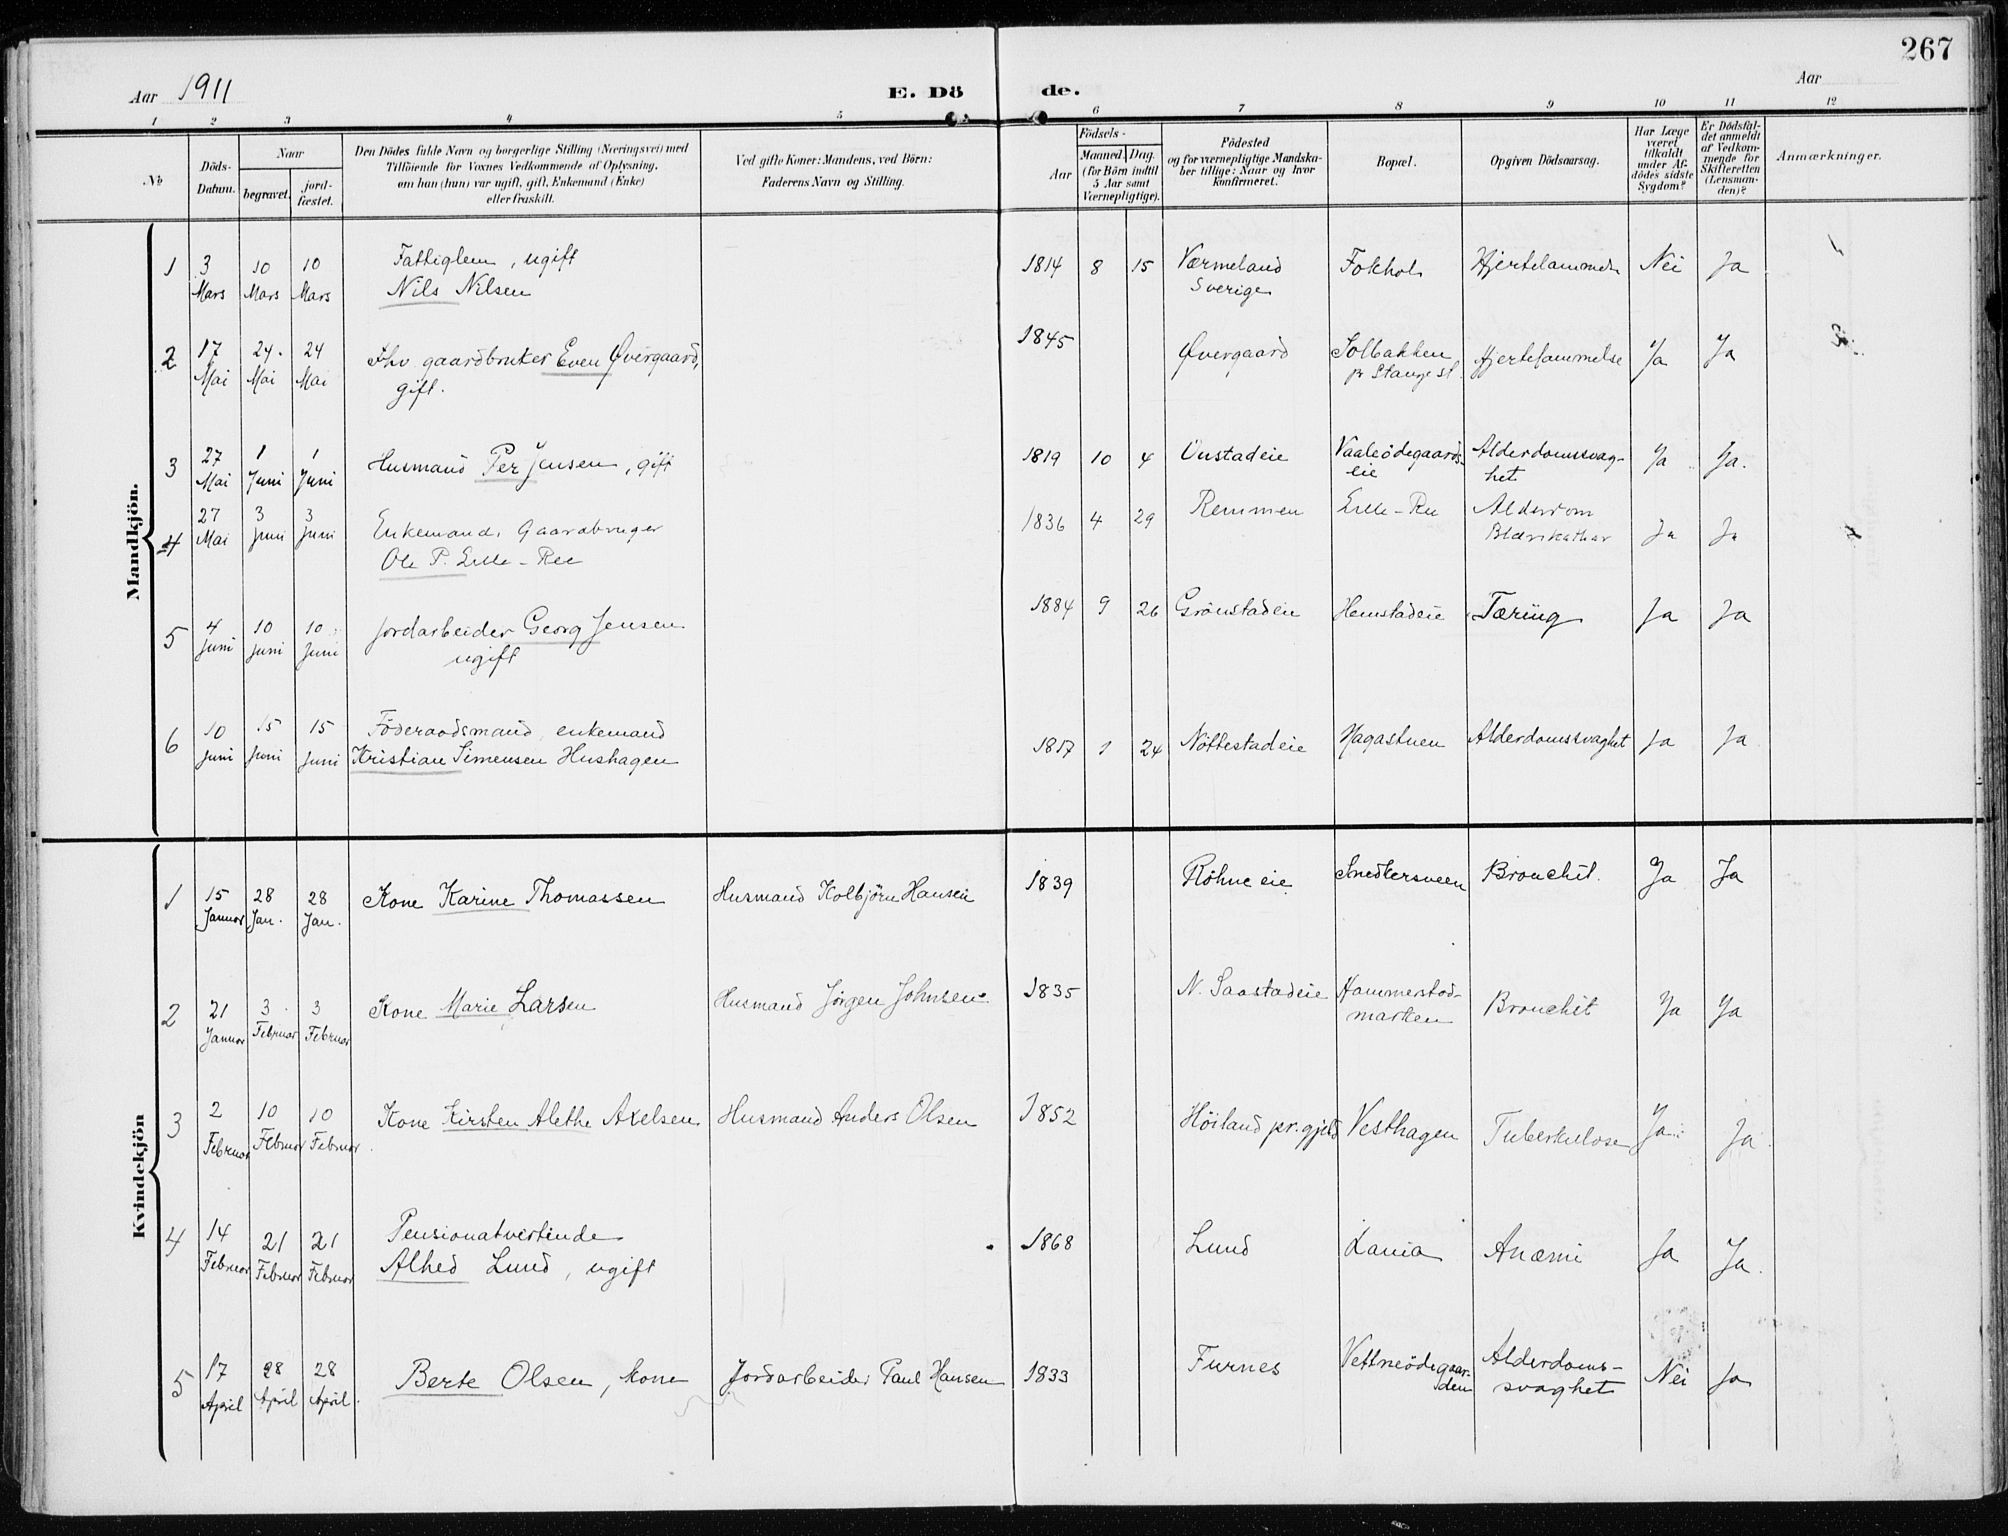 267
Aar 1911
E. Dö de.
Aar
1 2 3 4 5 6 7 8 9 10 11 12
No
Döds-
Datum.
Naar
begravet.
jord-
fæstet.
Den Dödes fulde Navn og borgerlige Stilling (Næringsvei) med
Tilföiende for Voxnes Vedkommende af Oplysning,
om han (hun) var ugift, gift, Enkemand (Enke)
eller fraskilt.
Ved gifte Koner: Mandens, ved Börn:
Faderens Navn og Stilling.
Födsels-
Aar
Maaned. Dag.
(for Börn indtil
5 Aar samt
Værnepligtige).
Födested
og for værnepligtige Mandska-
ber tillige: Naar og hvor
konfirmeret.
Bopæl.
Opgiven Dödsaarsag.
Har Læge
været
tilkaldt
under Af-
dödes sidste
Sygdom?
Er Dödsfal-
det anmeldt
af Vedkom-
mende for
Skifteretten
(Lensman-
den)?
Anmærkninger.
Mandkjön.
1 3 10 10 Fattiglem, ugift 1814 8 15 Værmeland Fokhol Hjertelammelse Nei Ja
Mars Mars Mars Nils Nilsen Sverige
2 17 24. 24 Fhv gaardbruker Even Øvergaard, 1845 Øvergaard Solbakken Hjertelammelse Ja Ja
Mai Mai Mai gift. pr Stange st.
3 27 1 1 Husmand Per Jensen, gift 1819 10 4 Oustadeie Vaaleödegaards- Alderdomssvag- Ja Ja.
Mai Juni Juni eie het
4 27 3 3 Enkemand, Gaardbruger 1836 4 29 Remmen Lille-Ree Alderdom Ja Ja
Mai Juni Juni Ole P. Lille-Ree Blærekathar
5 4 10 10 Jordarbeider Georg Jensen 1884 9 26 Grönstadeie Hemstadeie Tæring Ja Ja
Juni Juni Juni ugift
6 10 15 15 Föderaadsmand, enkemand 1817 1 24 Nöttestadeie Hagastuen Alderdomssvaghet Ja Ja
Juni Juni Juni Kristian Simensen Hushagen
Kvindekjön
1 15 28 28 Kone Karine Thomassen Husmand Kolbjörn Hansen 1839 Röhne eie Snedkersveen Bronchit. Ja Ja
Januar Jan. Jan.
2 21 3 3 Kone Marie Larsen Husmand Jörgen Johnsen 1835 N. Saastadeie Hammerstad- Bronchit Ja Ja
Januar Februar Februar marken
3 2 10 10 Kone Kirsten Alethe Axelsen Husmand Anders Olsen 1852 Höiland pr.gjeld Vesthagen Tuberkulose Ja Ja
Februar Februar Februar
4 14 21 21 Pensionatvertinde 1868 Lund Lania Anæmi Ja Ja.
Februar Februar Februar Alhed Lund, ugift
5 17 28 28 Berte Olsen, kone Jordarbeider Paul Hansen 1833 Furnes Vettneödegaar- Alderdoms- Nei Ja
April April April den svaghet